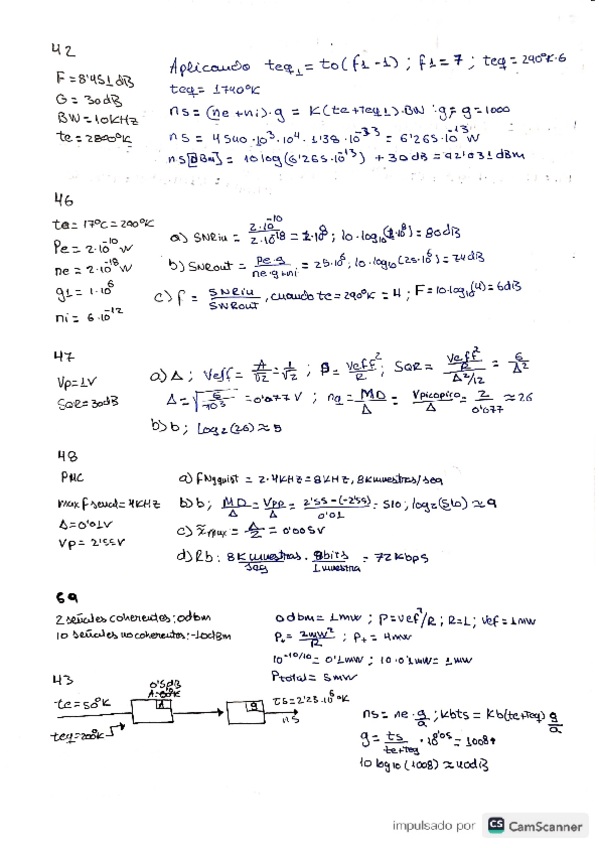 42
F = 8'451 dB
G = 30dB
BW = 10KHZ
te = 2800°K
Aplicando teq1 = to(f1 - 1) ; f1 = 7 ; teq = 290°K·6
teq = 1740°K
ns = (ne + ni)·g = K(te + teq1)·BW·g ; g = 1000
ns = 4540·10³·10⁴·1'38·10⁻²³ = 6'265·10⁻¹³ W
ns[dBm] = 10 log(6'265·10⁻¹³) + 30dB = -92'031 dBm
46
ta = 17°C = 290°K
Pe = 2·10⁻¹⁰ W
ne = 2·10⁻¹⁸ W
g1 = 1·10⁶
ni = 6·10⁻¹²
a) SNRin = 2·10⁻¹⁰ / 2·10⁻¹⁸ = 1·10⁸ ; 10·log10(1·10⁸) = 80dB
b) SNRout = Pe·g / ne·g+ni = 25·10⁶ ; 10·log10(25·10⁶) = 74dB
c) f = SNRin / SNRout , cuando te = 290°K = 4 ; F = 10·log10(4) = 6dB
47
Vp = 1V
SQR = 30dB
a) Δ ; Veff = A/√2 = 1/√2 ; P = Veff²/R ; SQR = (Veff²/R) / (Δ²/12) = 6/Δ²
Δ = √(6/10³) = 0'077 V ; nq = MD/Δ = Vpicopico/Δ = 2/0'077 ≈ 26
b) b ; log2(26) ≈ 5
48
PMC
max f send = 4KHZ
Δ = 0'01V
Vp = 2'55V
a) fNyquist = 2·4KHZ = 8KHZ, 8Kmuestras/seg
b) b ; MD/Δ = Vpp/Δ = 2'55-(-2'55) / 0'01 = 510 ; log2(510) ≈ 9
c) εmax = Δ/2 = 0'005V
d) Rb : 8Kmuestras/seg · 9bits/1muestra = 72Kbps
59
2 señales coherentes: 0dbm
10 señales no coherentes: -10dBm
0dbm = 1mW ; P = Vef²/R ; R = 1 ; Vef = 1mW
P+ = 2mW²/R ; P+ = 4mW
10^-10/10 = 0'1mW ; 10·0'1mW = 1mW
Ptotal = 5mW
43
te = 50°K
teq = 200°K
0'5dB
A
g
ts = 2'23·10⁶ °K
ns
ns = ne·g/a ; Kbts = Kb(te+teq) g/a
g = ts/te+teq
10 log10(1008) ≈ 40dB
impulsado por CS CamScanner